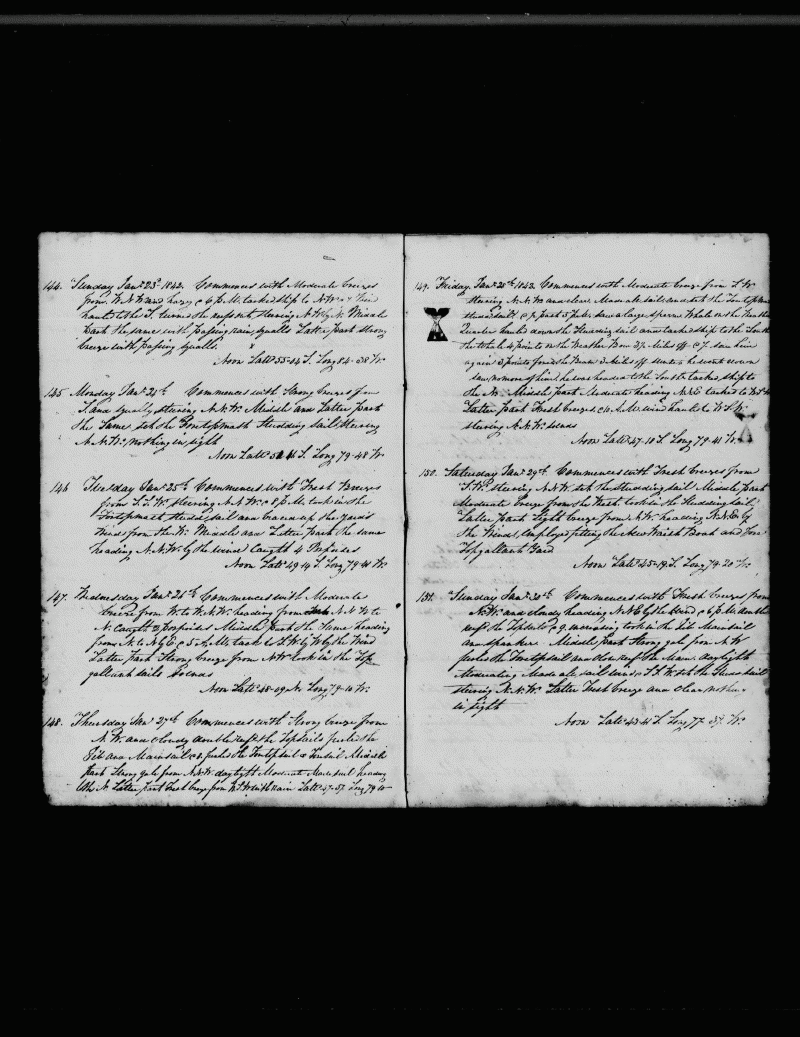 144. Sunday Jany 23d 1842. Commences with Moderate breezes
from W.N.W. and hazy @ 6 p.M. tacked ship to N.W.
hauled to the S. turned the reefs out steering N.W. by N. Middle
part the same with passing rain squalls Latter part strong
breeze with passing squalls
Noon Latd 55-44 S. Long 84-38 W.
145 Monday Jany 24th Commences with Strong breezes from
S. and squally steering N.N.W. Middle and Latter part
the Same set the Foretopmast Studding sail steering
N.N.W. nothing in sight
Noon Latd S. Long 79-48 W.
146 Tuesday Jany 25th Commences with Fresh Breezes
from S.S.W. steering N.N.W. @ 8 p.M. took in the
Foretopmast studd sail and braced up the yards
Winds from the W. Middle and Latter part the same
heading N.N.W. by the wind Caught 4 Porpoises
Noon Latd 49-14 S. Long 79-41 W.
147. Wednesday Jany 26th Commences with Moderate
breeze from W. to W.N.W. heading from N.N.W. to
N. Caught 2 porpoises Middle part the Same heading
from N. to N. by E. @ 5 A.M. tack S.W. by W. by the Wind
Latter part Strong breeze from N.W. took in the Top
gallant sails So ends
Noon Latd 48-09 Long 79-10 W.
148. Thursday Jan 27th Commences with Strong breeze from
N.W. and cloudy double reeft the Topsails furled the
Jib and Mainsail @ 8 furled the Foretopsail & Foresail Middle
part Strong gale from N.N.W. daylight Moderate Made sail heading
N. Latter part fresh breeze from W.S.W. with rain Latd 47-57 Long 79 10
149. Friday Jany 28th 1842 Commences with Moderate breeze from S.W.
steering N.N.W. and clear Made all sail and set the Foretopmast
studd sail @ past 5 p.M. saw a large sperm Whale on the
Quarter hauled down the Studding sail and tacked ship to the South
the whale 4 points on the Weather Bow 2½ Miles off @ 7 saw him
again 3 points from the Beam 3 Miles off he went down
saw no more of him, he was headed to the South tacked ship to
the N. Middle part Moderate heading N.N.E. tacked to W.S.W.
Latter part Fresh breezes @ 10 A.M. wind hauled to W.S.W.
steering N.N.W. So ends
Noon Latd 47-10 S. Long 79-41 W.
150. Saturday Jany 29th Commences with Fresh breezes from
S.W. steering N.N.W. set the studding sail Middle part
Moderate breeze from the West took in the Studding sail
Latter part light breeze from N.W. heading N.N.E. by
the Wind, employed fitting the New Waist Boat and Fore
Topgallant Yard
Noon Latd 45-19 S. Long 79-20 W.
151. Sunday Jany 30th Commences with Fresh breezes from
N.W. and cloudy heading N.N.E. by the Wind @ 6 p.M. double
reeft the Topsails @ 9 increasing took in the Jib Mainsail
and spanker. Middle part Strong gale from N.W.
furled the Foretopsail and close reeft the Main. daylight
Moderating Made sail wind S.S.W. set the studd sail
steering N.N.W. Latter Fresh breeze and clear nothing
in sight
Noon Latd 43-41 S. Long 77-57 W.